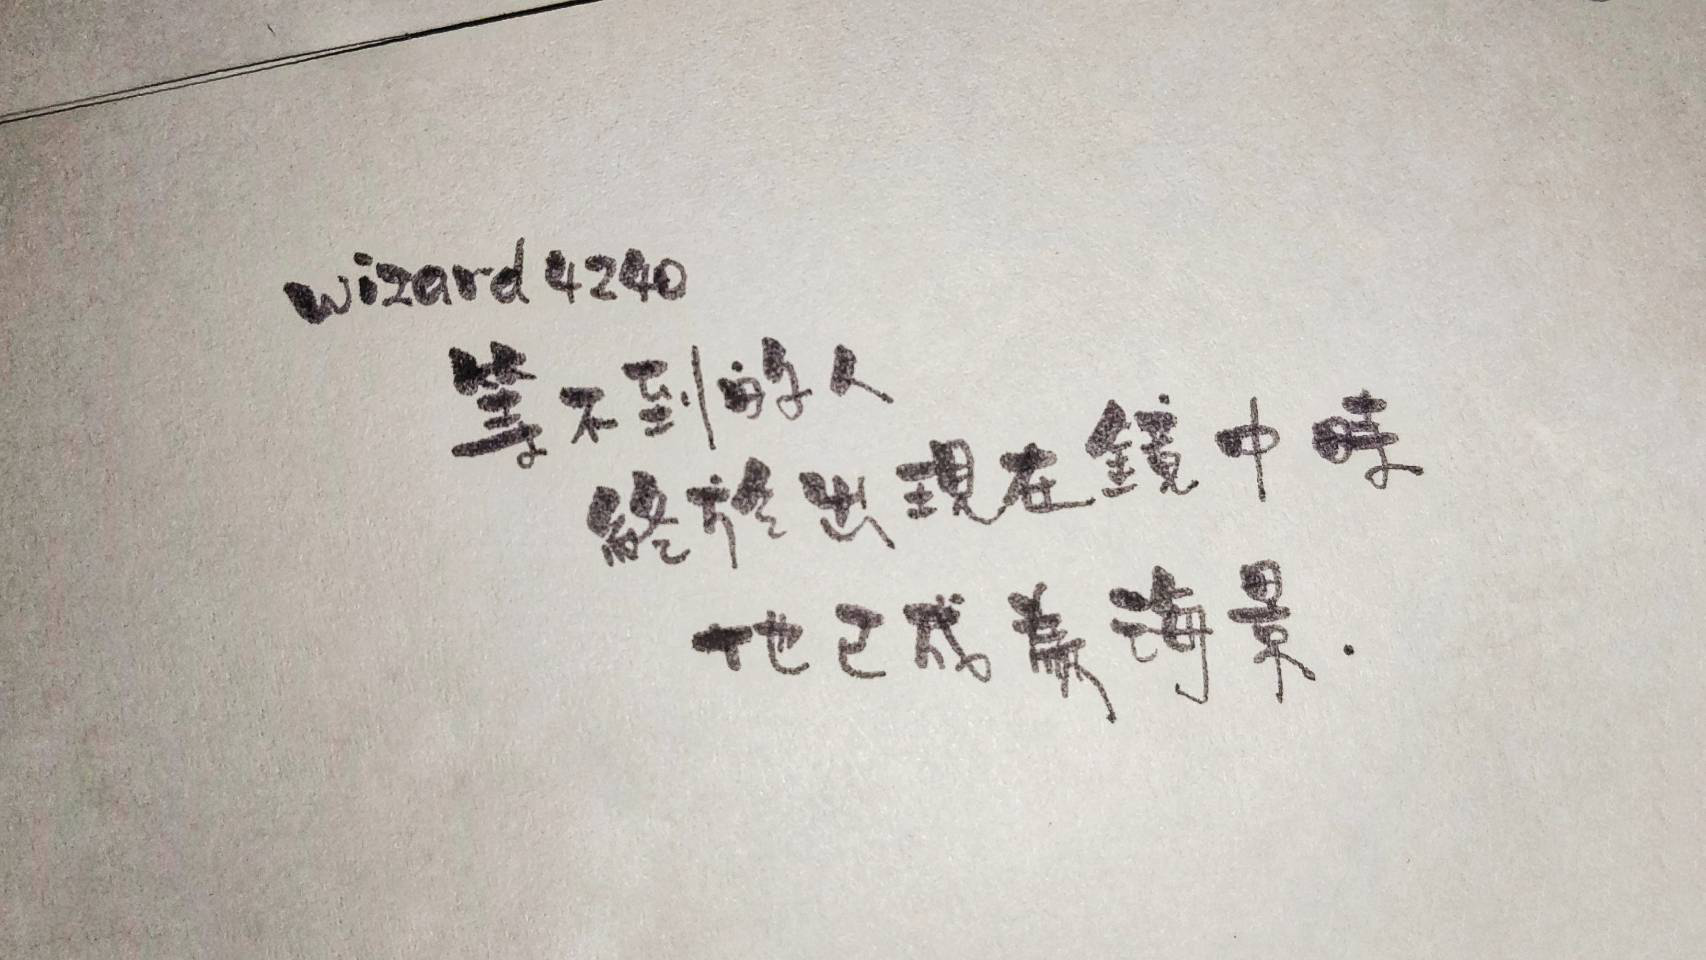 wizard 4240
等不到的人
終於出現在鏡中時
地已成為海景.